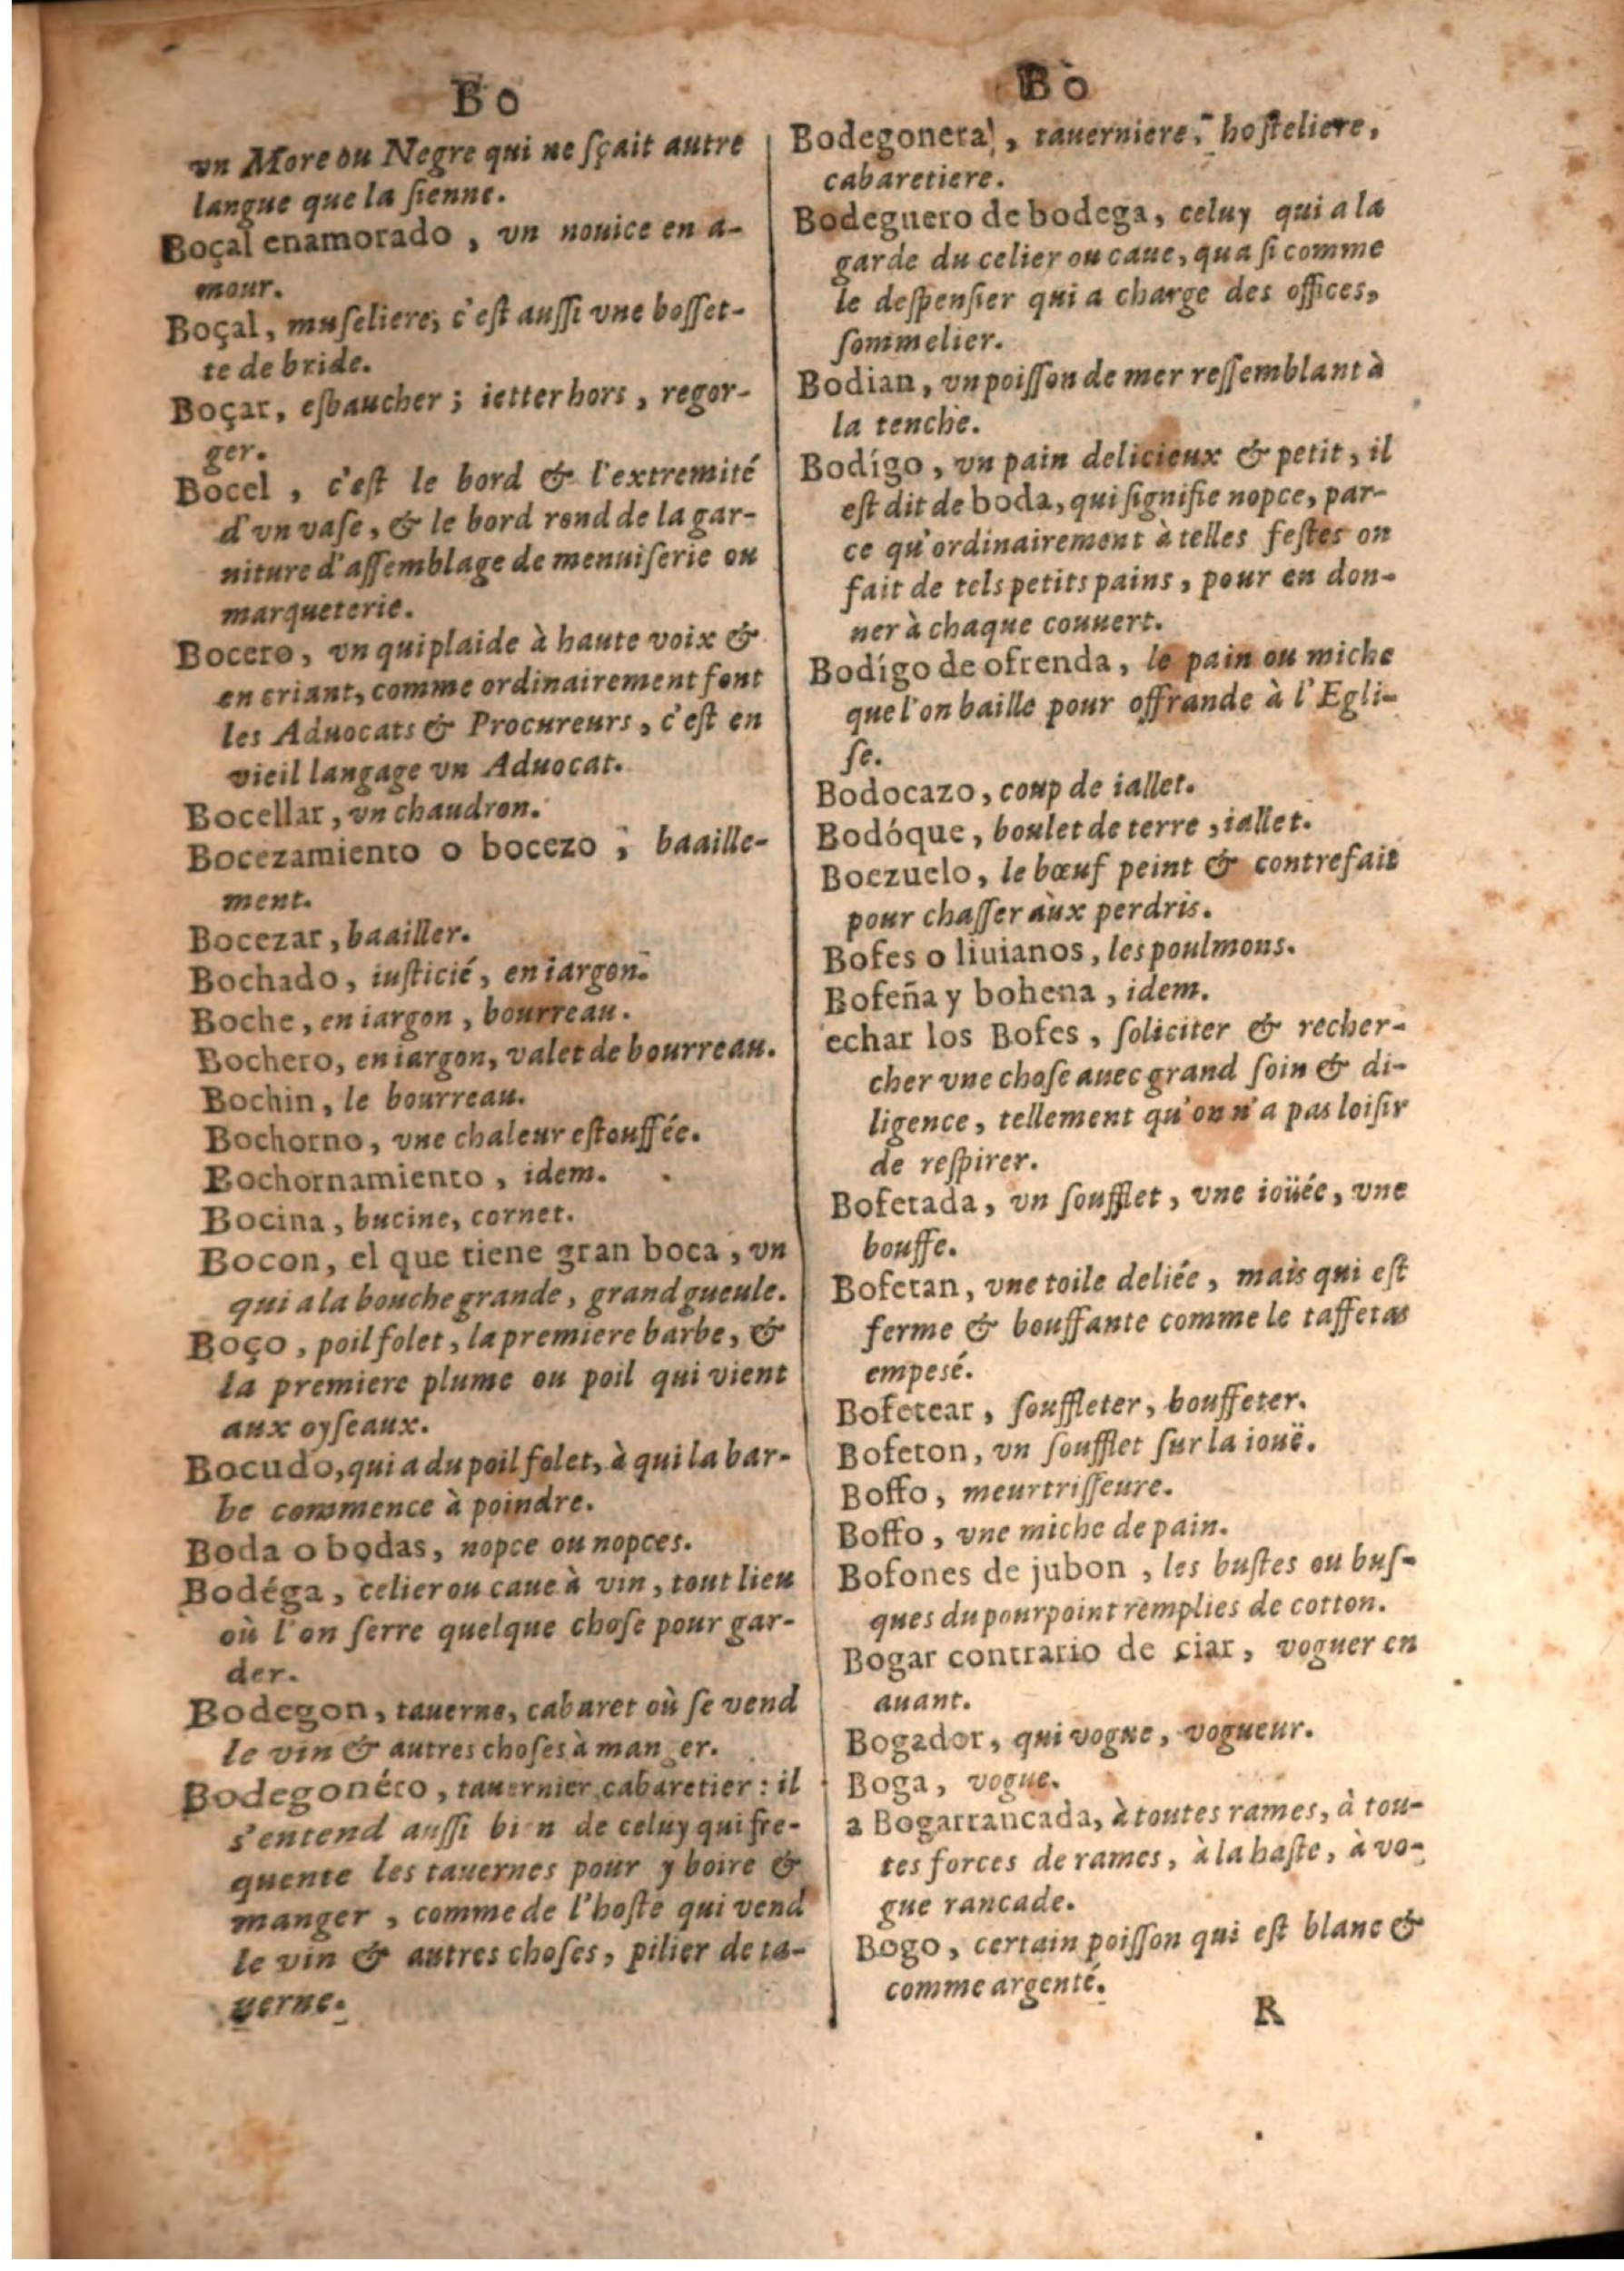 Bo
vn More ou Negre qui ne ſçait autre
langue que la ſienne.
Boçal enamorado, vn nouice en a-
mour.
Boçal, muſeliere; c'eſt auſſi vne boſſet-
te de bride.
Boçar, eſbaucher; ietter hors, regor-
ger.
Bocel, c'eſt le bord & l'extremité
d'vn vaſe, & le bord rond de la gar-
niture d'aſſemblage de menuiſerie ou
marqueterie.
Bocero, vn qui plaide à haute voix &
en criant, comme ordinairement font
les Aduocats & Procureurs, c'eſt en
vieil langage vn Aduocat.
Bocellar, vn chaudron.
Bocezamiento o bocezo, baaille-
ment.
Bocezar, baailler.
Bochado, iuſticié, en iargon.
Boche, en iargon, bourreau.
Bochero, en iargon, valet de bourreau.
Bochin, le bourreau.
Bochorno, vne chaleur eſtouffée.
Bochornamiento, idem.
Bocina, bucine, cornet.
Bocon, el que tiene gran boca, vn
qui a la bouche grande, grand gueule.
Boço, poil folet, la premiere barbe, &
la premiere plume ou poil qui vient
aux oyſeaux.
Bocudo, qui a du poil folet, à qui la bar-
be commence à poindre.
Boda o bodas, nopce ou nopces.
Bodéga, celier ou caue à vin, tout lieu
où l'on ſerre quelque choſe pour gar-
der.
Bodegon, tauerne, cabaret où ſe vend
le vin & autres choſes à manger.
Bodegonéro, tauernier cabaretier: il
s'entend auſſi bien de celuy qui fre-
quente les tauernes pour y boire &
manger, comme de l'hoſte qui vend
le vin & autres choſes, pilier de ta-
uerne.
Bo
Bodegonera, tauerniere, hoſteliere,
cabaretiere.
Bodeguero de bodega, celuy qui a la
garde du celier ou caue, quaſi comme
le deſpenſier qui a charge des offices,
ſommelier.
Bodian, vn poiſſon de mer reſſemblant à
la tenche.
Bodígo, vn pain delicieux & petit, il
eſt dit de boda, qui ſignifie nopce, par-
ce qu'ordinairement à telles feſtes on
fait de tels petits pains, pour en don-
ner à chaque couuert.
Bodígo de ofrenda, le pain ou miche
que l'on baille pour offrande à l'Egli-
ſe.
Bodocazo, coup de iallet.
Bodóque, boulet de terre, iallet.
Boezuelo, le bœuf peint & contrefait
pour chaſſer aùx perdris.
Bofes o liuianos, les poulmons.
Bofeña y bohena, idem.
echar los Bofes, ſoliciter & recher-
cher vne choſe auec grand ſoin & di-
ligence, tellement qu'on n'a pas loiſir
de reſpirer.
Bofetada, vn ſoufflet, vne ioüée, vne
bouffe.
Bofetan, vne toile deliée, mais qui eſt
ferme & bouffante comme le taffetas
empesé.
Bofetear, ſouffleter, bouffeter.
Bofeton, vn ſoufflet ſur la iouë.
Boffo, meurtriſſeure.
Boffo, vne miche de pain.
Bofones de jubon, les buſtes ou buſ-
ques du pourpoint remplies de cotton.
Bogar contrario de ciar, voguer en
auant.
Bogador, qui vogue, vogueur.
Boga, vogue.
a Bogarrancada, à toutes rames, à tou-
tes forces de rames, à la haſte, à vo-
gue rancade.
Bogo, certain poiſſon qui eſt blanc &
comme argenté.
R